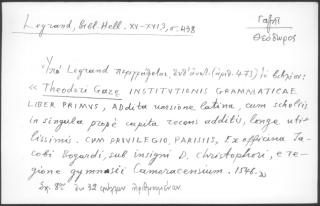 Legrand, Bibl. Hell. XV-XVI3, σ. 438
Γαζῆ
Θεόδωρος
Ὑπὸ Legrand περιγράφεται, (ἀριθ. 473) τὸ βιβλίον:
« Theodori Gazę INSTITVTIONIS GRAMMATICAE
LIBER PRIMVS, Addita versione latina, cum scholiis
in singula propè capita recens additis, longe uti-
lissimis. CVM PRIVILEGIO, PARISIIS, Ex officina Ja-
cobi Bogardi, sub insigni D. Christophori, e re-
gione gymnasii Cameracensium. 1546. »
Σχ. 8ον ἐκ 32 φύλλων ἀριθμημένων.